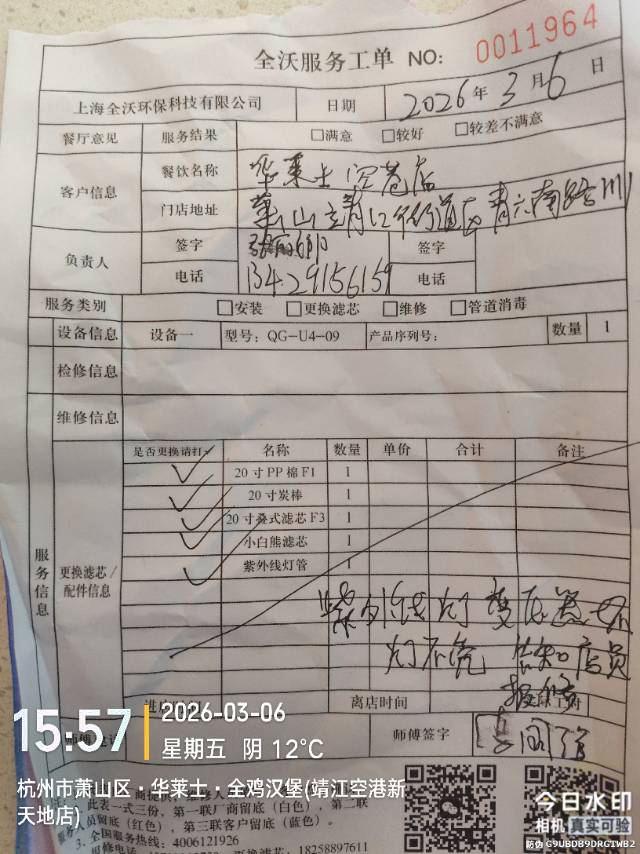 全沃服务工单 NO: 0011964
上海全沃环保科技有限公司 日期 2026年3月6日
餐厅意见 服务结果 □满意 □较好 □较差不满意
客户信息 餐饮名称 华莱士空港店
门店地址 萧山 靖江街道 青六南路
负责人 签字 签字
电话 13429156159 电话
服务类别 □安装 □更换滤芯 □维修 □管道消毒
设备信息 设备一 型号: QG-U4-09 产品序列号: 数量 1
检修信息
维修信息
服务信息 更换滤芯/配件信息
是否更换请打✓ 名称 数量 单价 合计 备注
✓ 20寸PP棉F1 1
✓ 20寸炭棒 1
✓ 20寸叠式滤芯F3 1
✓ 小白熊滤芯 1
✓ 紫外线灯管 1
紫外线灯变压器坏
灯不亮 告知店员
报修
离店时间
师傅签字
15:57 2026-03-06
星期五 阴 12°C
杭州市萧山区·华莱士·全鸡汉堡(靖江空港新天地店)
此表一式三份，第一联厂商留存（白色），第二联
留底（红色），第三联客户留底（蓝色）。
3. 全国服务热线: 4006121926
18258897611
今日水印
相机 真实可验
防伪 G9UBDB9DRGTWB2